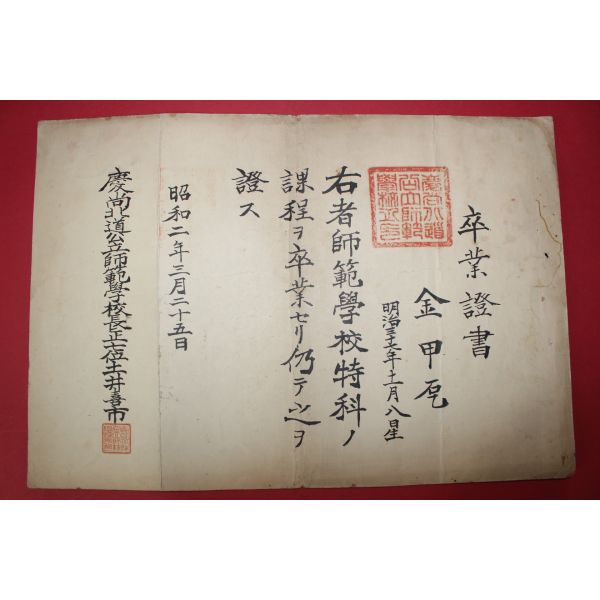 卒業證書
金甲
慶尚北道
公立師範
學校之印
明治三十七年十一月八日生
右者師範學校特科ノ
課程ヲ卒業セリ仍テ之ヲ
證ス
昭和二年三月二十五日
慶尚北道公立師範學校長正七位土井喜市